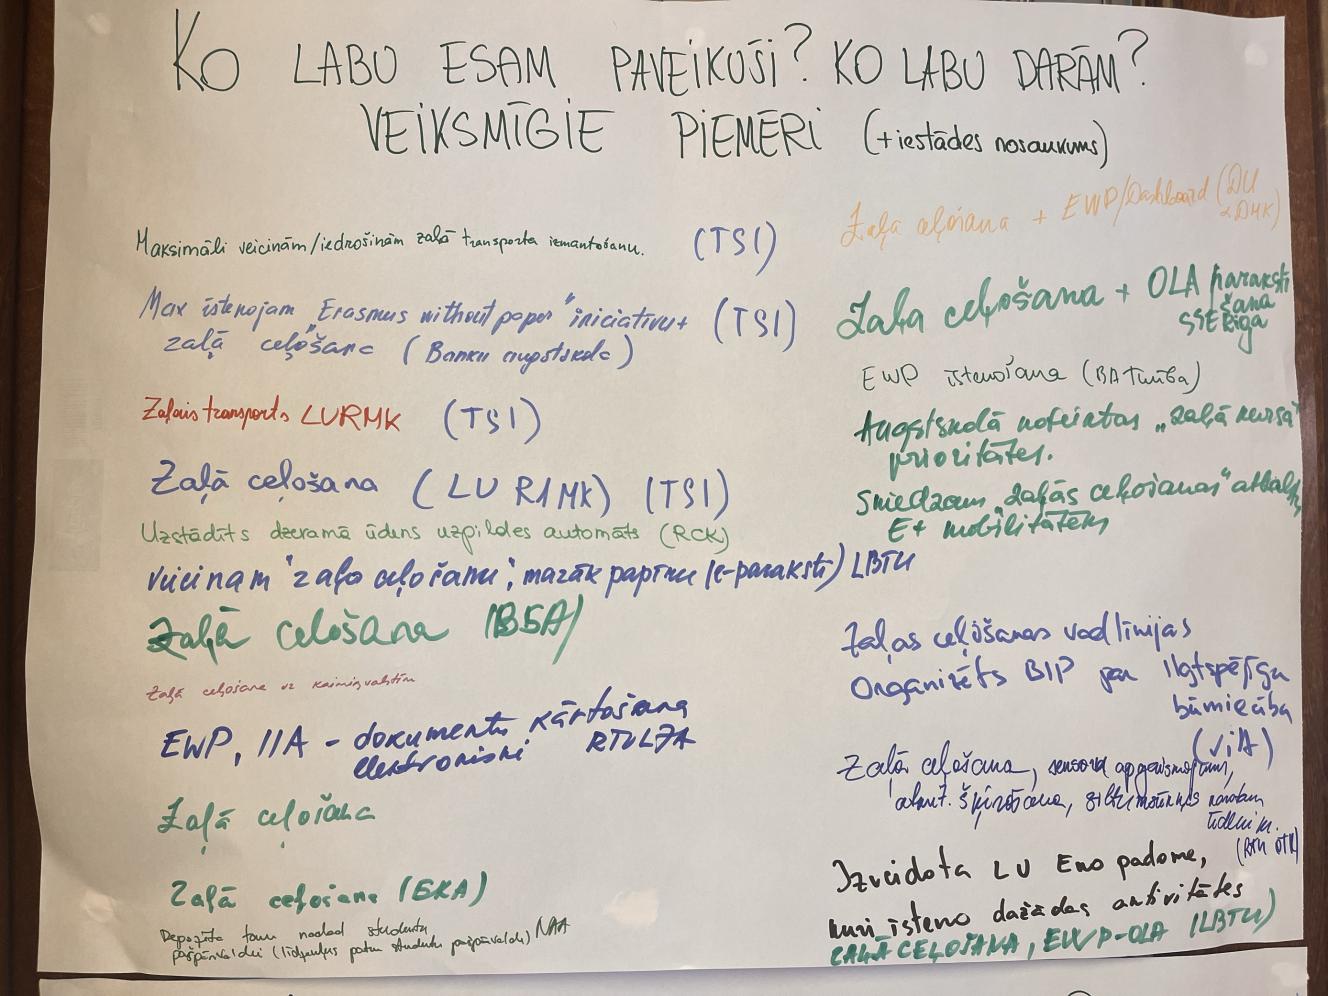 KO LABU ESAM PAVEIKUŠI? KO LABU DARĀM?
VEIKSMĪGIE PIEMĒRI (+iestādes nosaukums)
Maksimāli veicinām/iedrošinām zaļā transporta izmantošanu. (TSI)
Max īstenojam "Erasmus without paper" iniciatīvu+ (TSI)
zaļā ceļošana (Banku augstskola)
Zaļais transports LURMK (TSI)
Zaļā ceļošana (LU R1MK) (TSI)
Uzstādīts dzeramā ūdens uzpildes automāts (RCK)
Veicinam "zaļo ceļošanu", mazāk papīru (e-paraksti) LBTU
Zaļā ceļošana (BSA)
Zaļā ceļošana uz kaimiņvalstīm
EWP, IIA - dokumentu kārtošana
elektroniski RTU LJA
Zaļā ceļošana
Zaļā ceļošana (EKA)
Depozīta taru nodod studentu
pašpārvaldei (līdzekļus patur studentu pašpārvalde) NAA
Zaļā ceļošana + EWP/Dashboard (DU
DMK)
Zaļa ceļošana + OLA paraksti
šana
SSE Riga
EWP īstenošana (BA Turība)
Augstskolā noteiktas „zaļā kursa"
prioritātes.
Sniedzam „zaļās ceļošanas" atbalstu
E+ mobilitātēm
Zaļas ceļošanas vadlīnijas
Organizēts BIP par ilgtspējīgu
būvniecību
(ViA)
Zaļā ceļošana, sensora apgaismojums,
atkrit. šķirošana, siltumsūknis
ūdenim.
(RSU
Izveidota LU Eko padome,
kuri īsteno dažādas aktivitātes
ZAĻĀ CEĻOŠANA, EWP-OLA (LBTU)